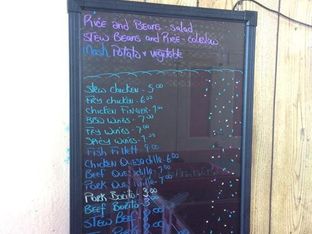 Rice and Beans - salad
Stew Beans and Rice - coleslaw
Mash Potato + vegetable
Stew Chicken - 5.00
Fry Chicken - 6.00
Chicken Finger - 7.00
BBQ Wings - 7.00
Fry Wings - 7.00
Spicy Wings - 9.00
Fish Fillet 9.00
Chicken Quesadilla - 6.00
Beef Quesadilla - 7.00
Pork Quesadilla
Pork Borito
Beef Borito
Stew Beef